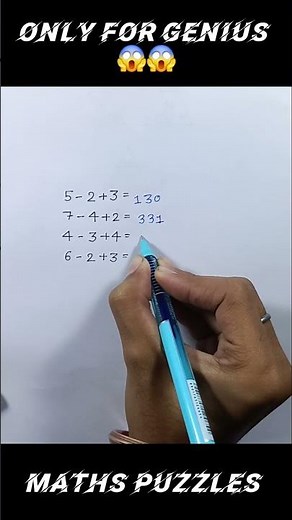 ONLY FOR GENIUS
😱😱
5-2+3= 130
7-4+2= 331
4-3+4=
6-2+3=
MATHS PUZZLES